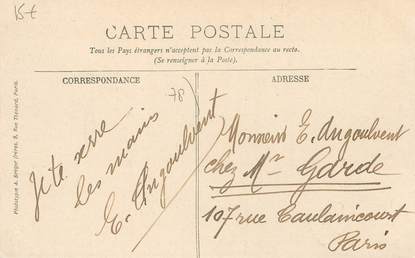 15€
CARTE POSTALE
Tous les Pays étrangers n'acceptent pas la Correspondance au recto.
(Se renseigner à la Poste).
CORRESPONDANCE
ADRESSE
78
Je te serre
les mains
E. Angoulvent
Monsieur E. Angoulvent
chez Mr Garde
107 rue Caulaincourt
Paris
Phototypie A. Breger frères, 9, Rue Thénard, Paris.